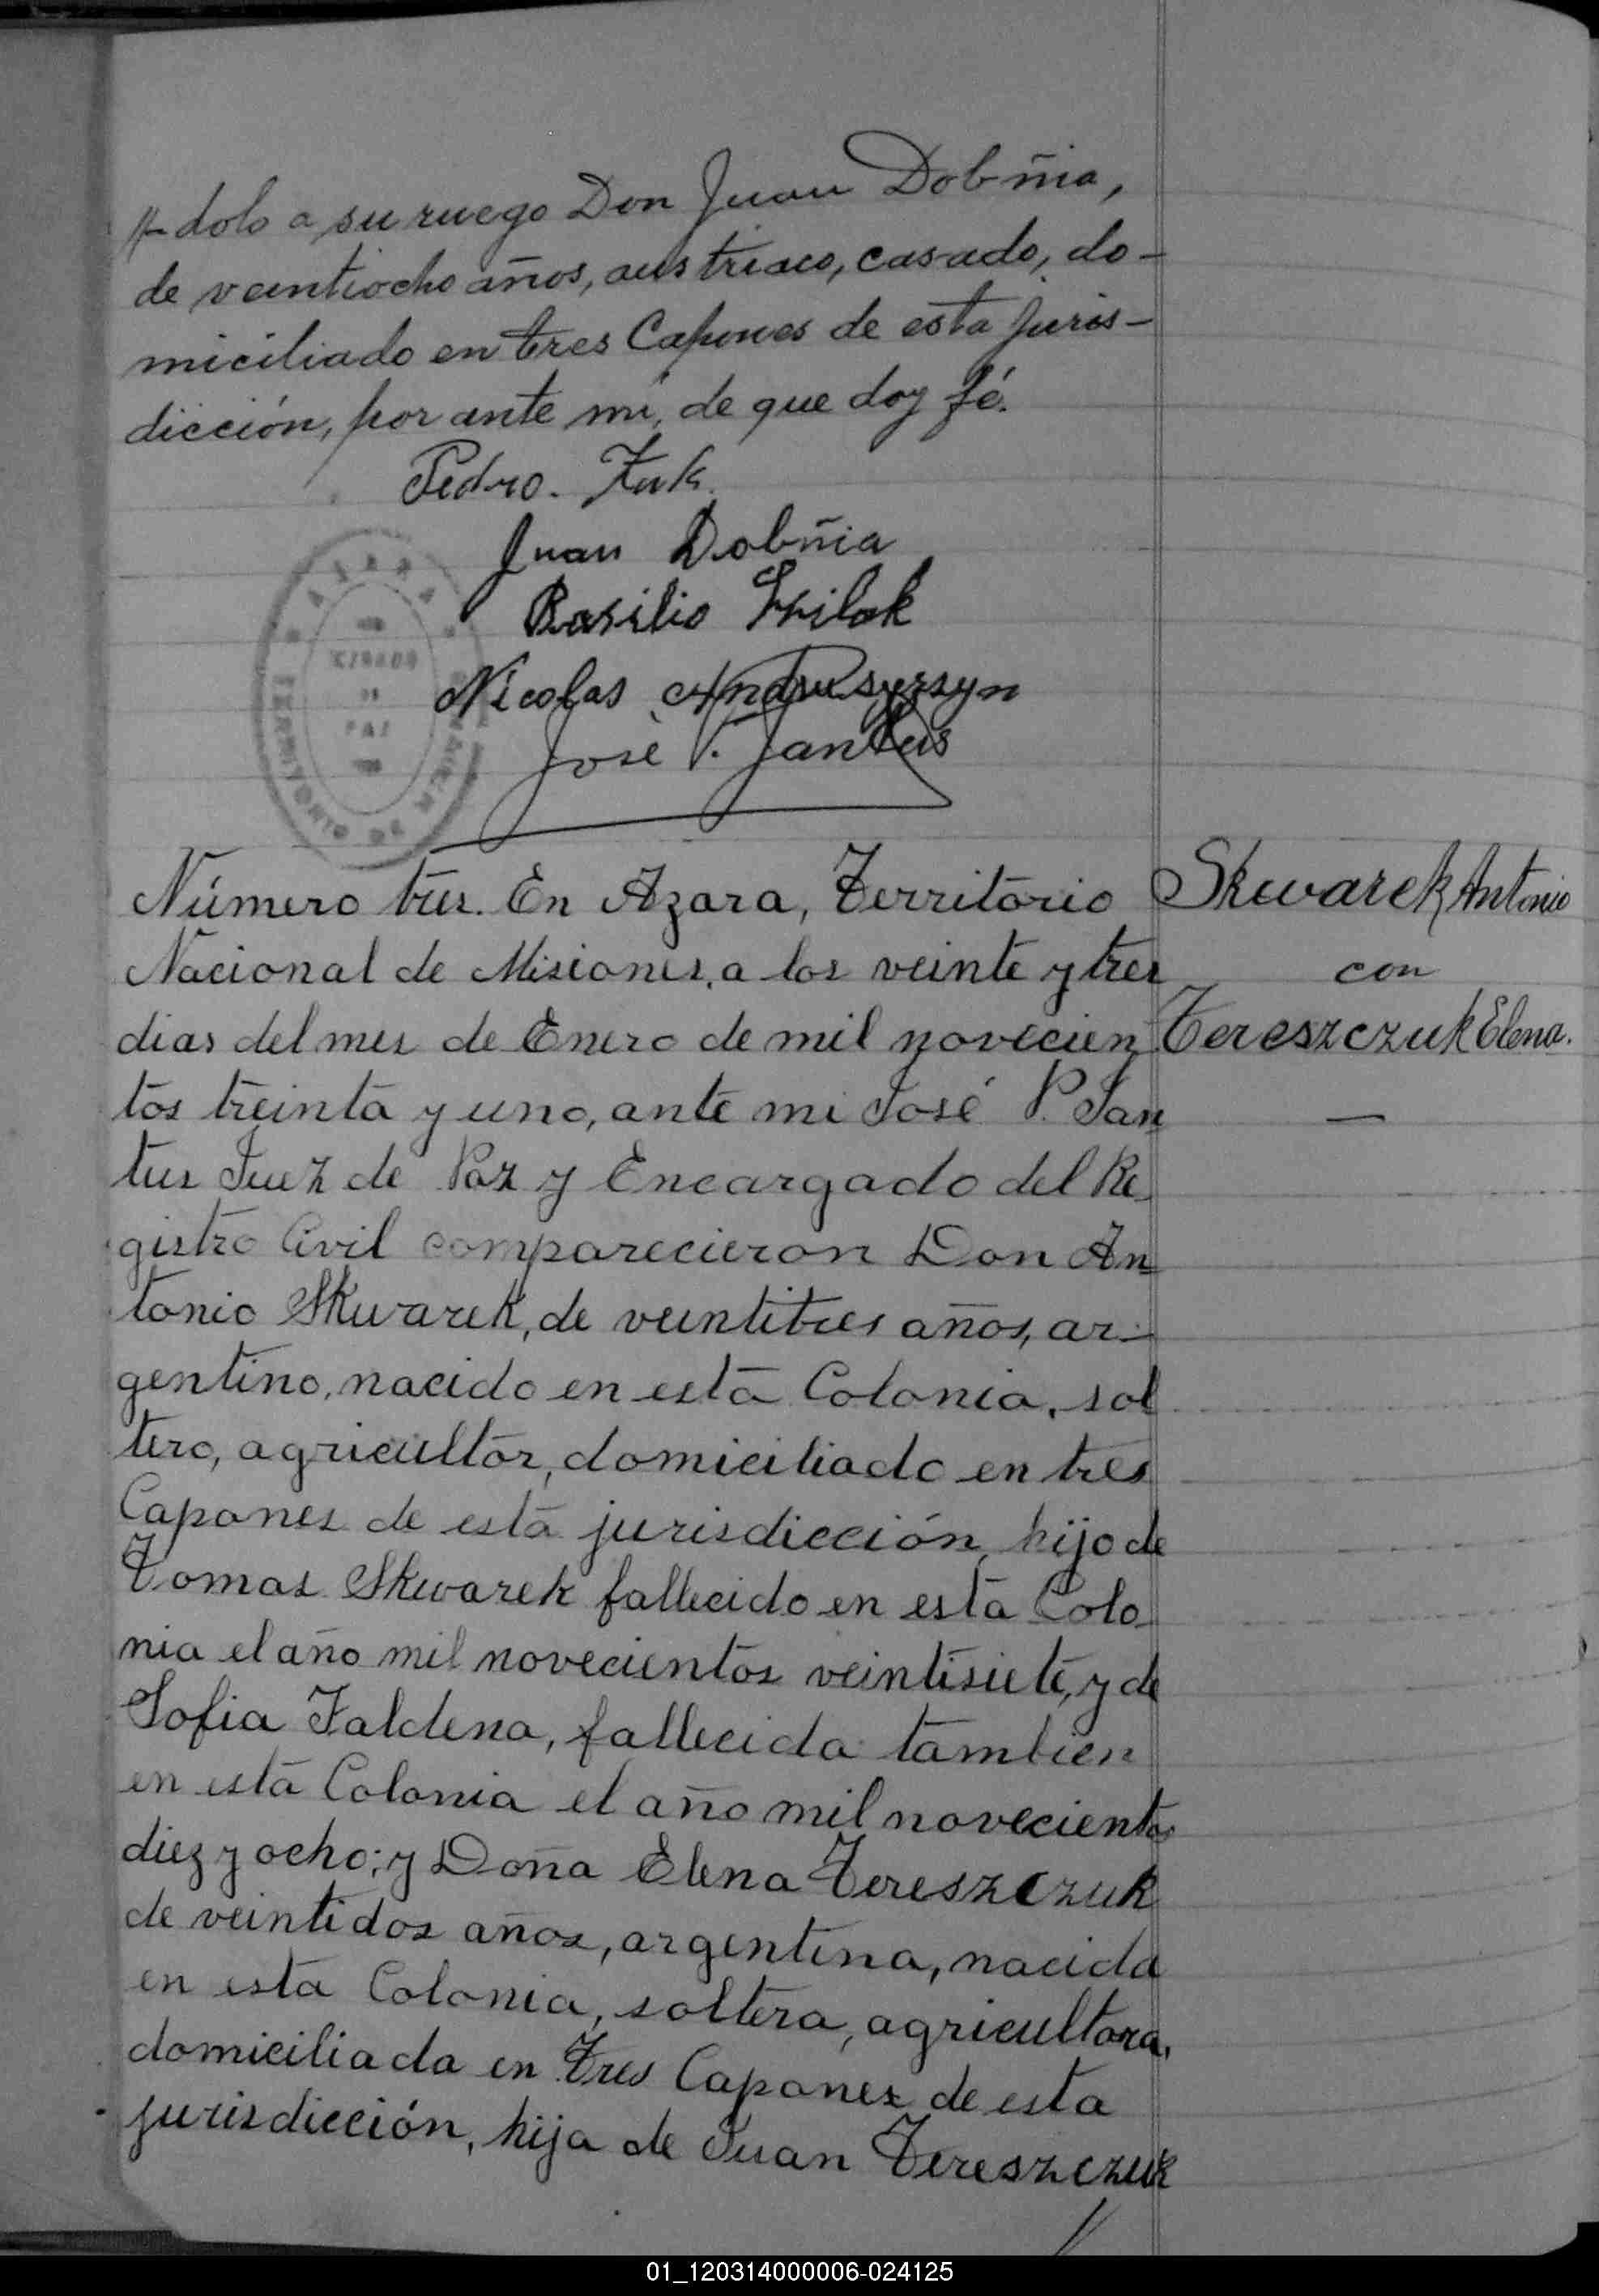 //-dolo a su ruego Don Juan Dobñia,
de veintiocho años, austriaco, casado, do-
miciliado en tres Capones de esta juris-
dicción, por ante mi, de que doy fé.
Pedro. Zuk.
Juan Dobñia
Basilio Hrilak
Nicolas Andrusyszyn
José P. Jantus
AZARA
JUZGADO
DE
PAZ
TERRITORIO
Número tres. En Azara, Territorio
Nacional de Misiones, a los veinte y tres
dias del mes de Enero de mil novecien
tos treinta y uno, ante mi José P. Jan
tus Juez de Paz y Encargado del Re
gistro Civil comparecieron Don An
tonio Skwarek, de veintitres años, ar-
gentino, nacido en esta Colonia, sol
tero, agricultor, domiciliado en tres
Capones de esta jurisdicción, hijo de
Tomas Skwarek fallecido en esta Colo
nia el año mil novecientos veintisiete, y de
Sofia Faldena, fallecida tambien
en esta Colonia el año mil novecientos
diez y ocho; y Doña Elena Tereszczuk
de veintidos años, argentina, nacida
en esta Colonia, soltera, agricultora,
domiciliada en Tres Capones de esta
jurisdicción, hija de Juan Tereszczuk
/
Skwarek Antonio
con
Tereszczuk Elena.
—
01_120314000006-024125